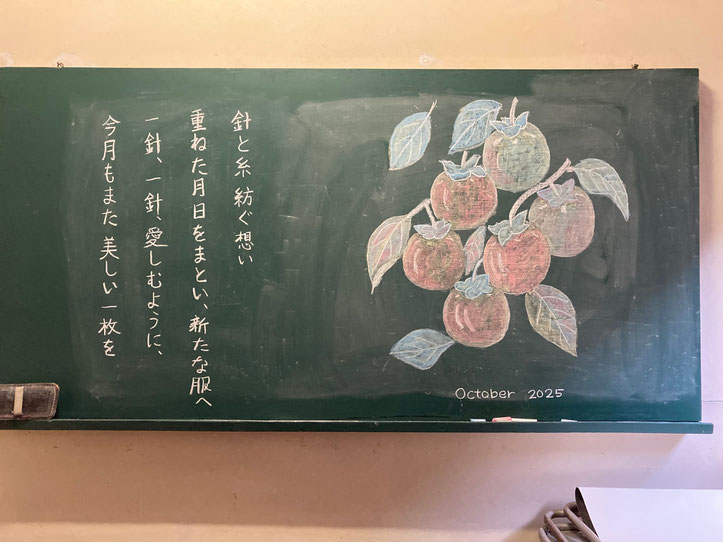 針と糸 紡ぐ想い
重ねた月日をまとい、新たな服へ
一針、一針、愛しむように、
今月もまた 美しい一枚を
October 2025